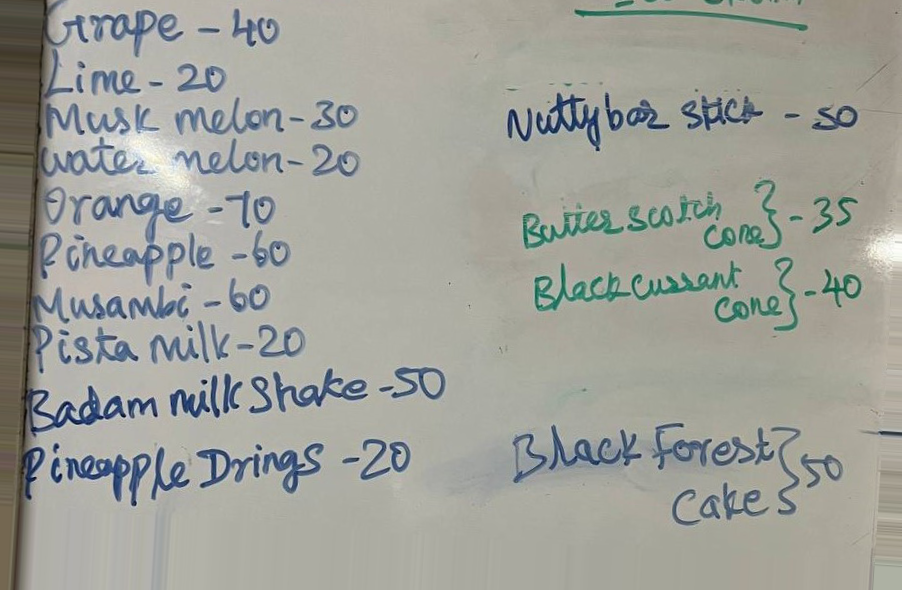 Grape - 40
Lime - 20
Musk melon - 30
water melon - 20
Orange - 70
Pineapple - 60
Musambi - 60
Pista milk - 20
Badam milk Shake - 50
Pineapple Drings - 20
Nuttybar stick - 50
Butter scotch
cone } - 35
Black currant
cone } - 40
Black Forest
Cake } 50